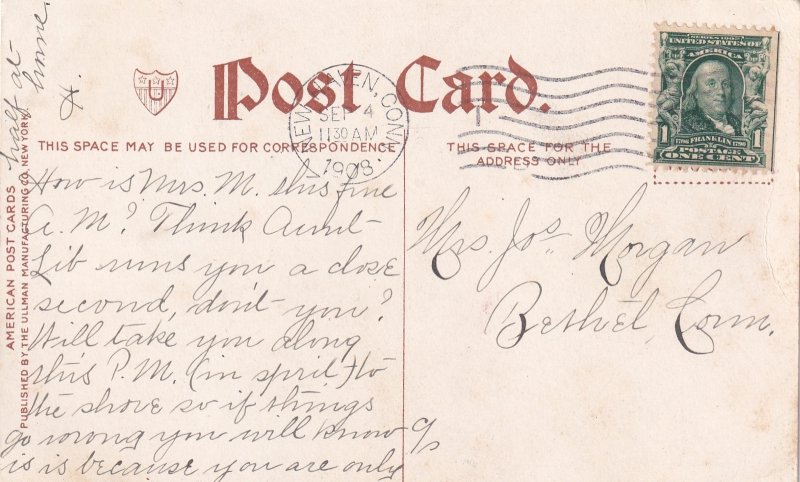 Post Card.
U
NEW HAVEN, CONN.
SEP 4
1130 AM
1908
SERIES 1902
UNITED STATES OF
AMERICA
1 1
FRANKLIN
POSTAGE
ONE CENT
THIS SPACE MAY BE USED FOR CORRESPONDENCE
THIS SPACE FOR THE
ADDRESS ONLY
AMERICAN POST CARDS
PUBLISHED BY THE ULLMAN MANUFACTURING CO. NEW YORK
How is Mrs. M. this fine
A.M? Think Aunt
Lib runs you a close
second, don't you?
Will take you along
this P.M. (in spirit) to
the shore so if things
go wrong you will know
is is because you are only
half at
home.
H.
Mrs. Jos. Morgan
Bethel, Conn.